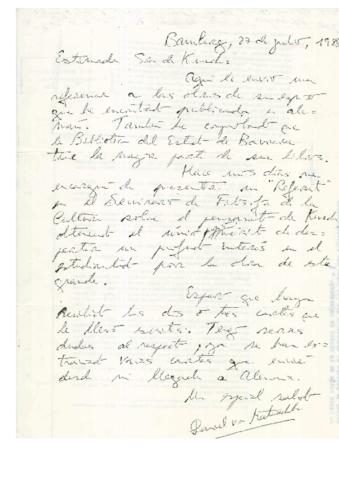 Bamberg, 27 de julio, 198
Estimada Sra de Kusch:
Aquí le envío una
referencia a las obras de su esposo
que he encontrado publicadas en ale-
mán. También he comprobado que
la Biblioteca del Estado de Baviera
tiene la mayor parte de sus libros.
Hace unos días me
encargué de presentar un "Referat"
en el Seminario de Filosofía de la
Cultura sobre el pensamiento de Kusch
obteniendo el de des-
pertar un profundo interés en el
estudiantado por la obra de este
grande.
Espero que haya
recibido las dos o tres cartas que
le llevo escritas. Tengo serias
dudas al respecto, pues se han ex-
traviado varias cartas que envié
desde mi llegada a Alemania.
Un especial saludo